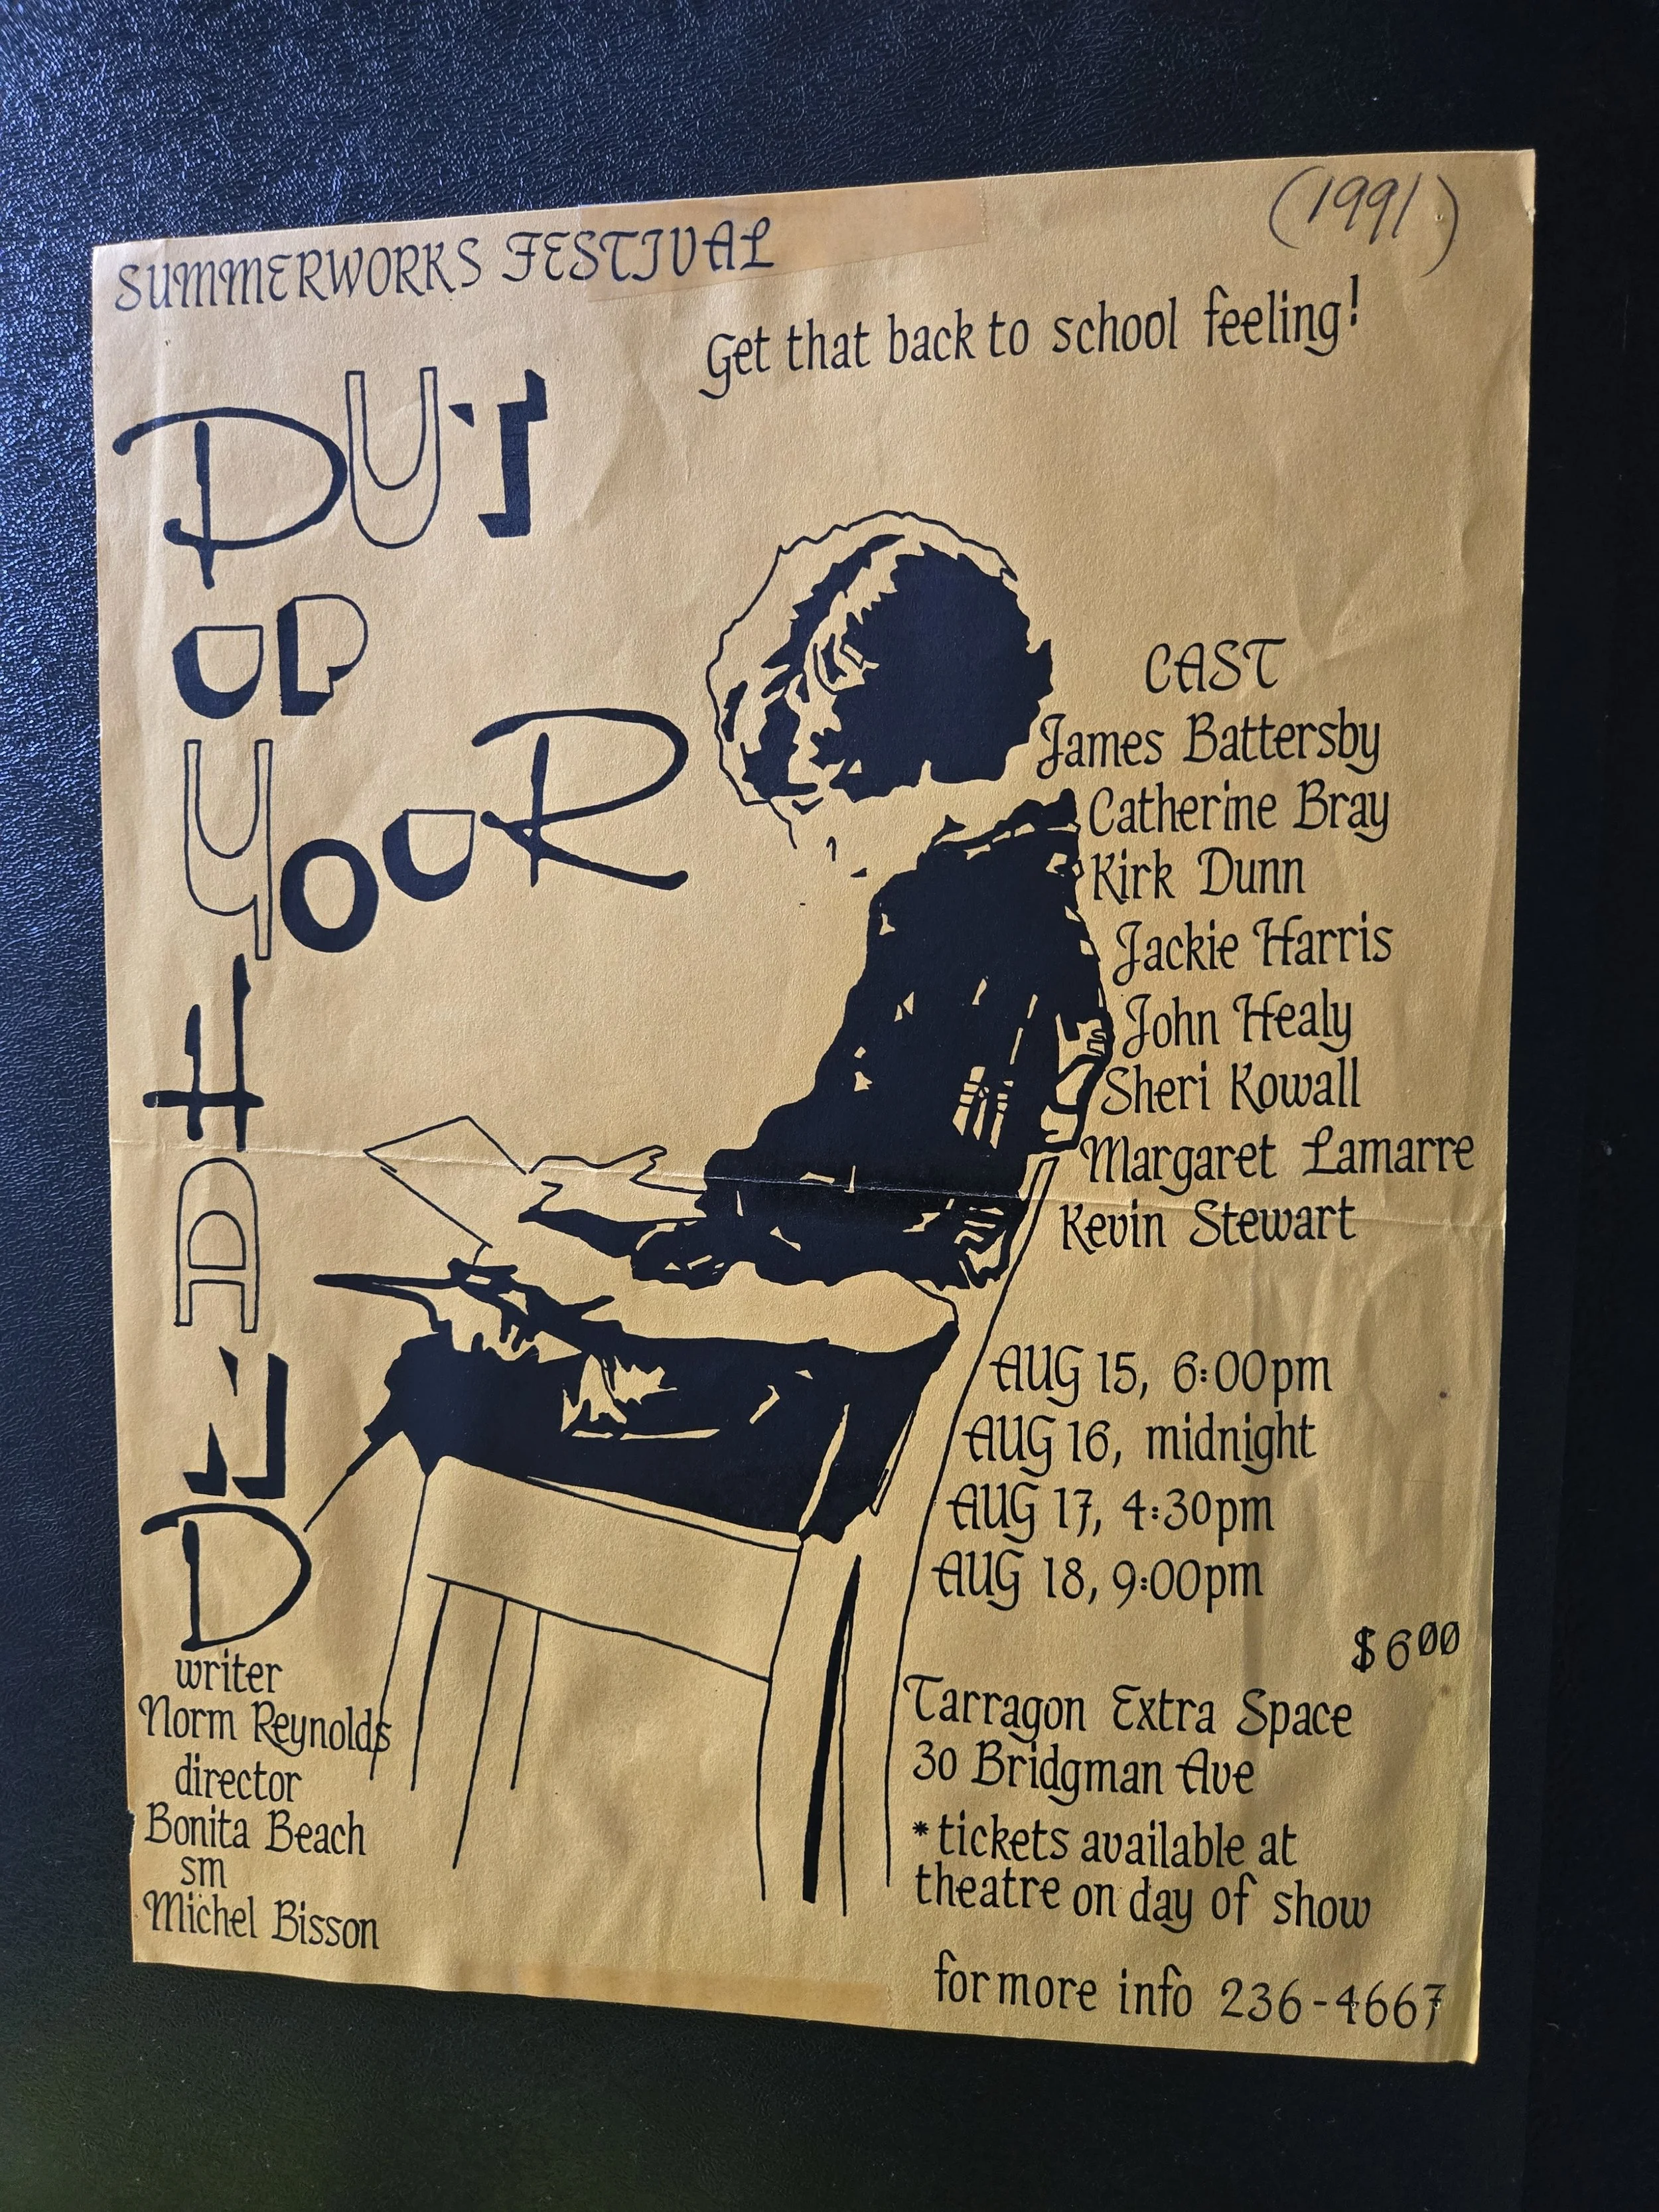 (1991)
SUMMERWORKS FESTIVAL
Get that back to school feeling!
PUT
UP
YOUR
HAND
CAST
James Battersby
Catherine Bray
Kirk Dunn
Jackie Harris
John Healy
Sheri Kowall
Margaret Lamarre
Kevin Stewart
AUG 15, 6:00pm
AUG 16, midnight
AUG 17, 4:30pm
AUG 18, 9:00pm
$600
Tarragon Extra Space
30 Bridgman Ave
*tickets available at
theatre on day of show
for more info 236-4667
writer
Norm Reynolds
director
Bonita Beach
sm
Michel Bisson